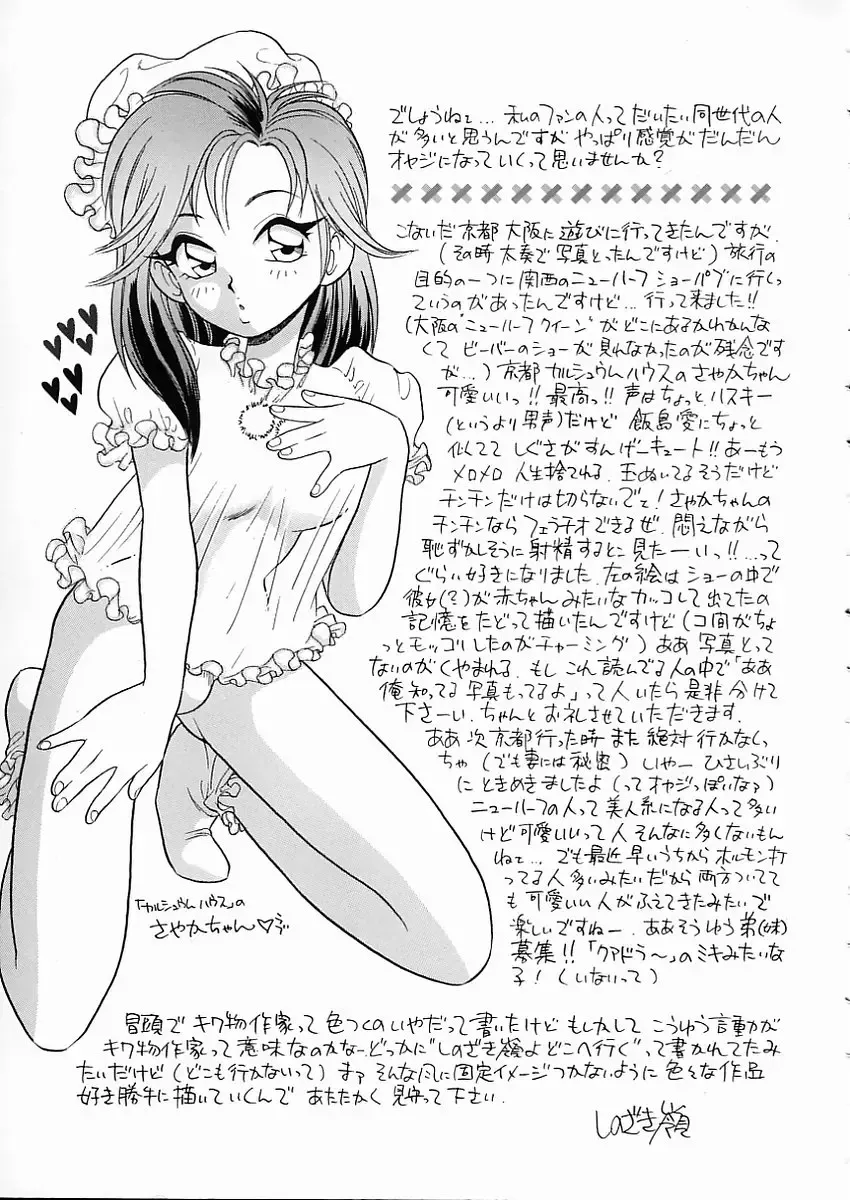 でしょうねェ… 私のファンの人ってだいたい同世代の人
が多いと思うんですが やっぱり感覚がだんだん
オヤジになっていくって思いませんか？
こないだ京都 大阪に遊びに行ってきたんですが、
(その時 太秦で写真とったんですけど) 旅行の
目的の一つに関西のニューハーフショーパブに行くっ
ていうのがあったんですけど… 行って来ました!!
(大阪の"ニューハーフクイーン"がどこにあるかわかんな
くて ビーバーのショーが見れなかったのが残念です
が…) 京都 カルシュウムハウスのさやかちゃん
可愛いいっ!! 最高っ!! 声はちょっとハスキー
(というより男声)だけど 飯島愛にちょっと
似てて しぐさがすんげーキュート!! あーもう
メロメロ 人生捨てれる、玉ぬいてるそうだけど
チンチンだけは切らないでェ! さやかちゃんの
チンチンなら フェラチオできるぜ、悶えながら
恥ずかしそうに射精するとこ見たーいっ!! …って
ぐらい好きになりました、左の絵はショーの中で
彼女(?)が赤ちゃんみたいなカッコして出てたの
記憶をたどって描いたんですけど (コ間がちょ
っとモッコリしたのがチャーミング) ああ 写真とって
ないのがくやまれる、もし これ読んでる人の中で「ああ
俺知ってる 写真もってるよ」って人いたら是非分けて
下さーい、ちゃんとお礼させていただきます、
ああ 次 京都行った時 また 絶対行かなくっ
ちゃ (でも妻には秘密) いやー ひさしぶり
に ときめきましたよ (ってオヤジっぽいなァ)
ニューハーフの人って美人系になる人って多い
けど可愛いいって人 そんなに多くないもん
ねェ… でも最近 早いうちからホルモン打
ってる人 多いみたいだから 両方ついてて
も可愛いい人がふえてきたみたいで
楽しいですねー、ああそうゆう弟(妹)
募集!! 「クアドラ〜」のミキみたいな
子! (いないって)
「カルシュウムハウス」の
さやかちゃん♡
冒頭で キワ物作家って色つくのいやだって書いたけど もしかして こうゆう言動が
キワ物作家って意味なのかなー、どっかに"しのざき嶺よどこへ行く"って書かれてたみ
たいだけど (どこも行かないって) まァ そんな風に固定イメージつかないように 色々な作品
好き勝手に描いていくんで あたたかく見守って下さい、
しのざき嶺